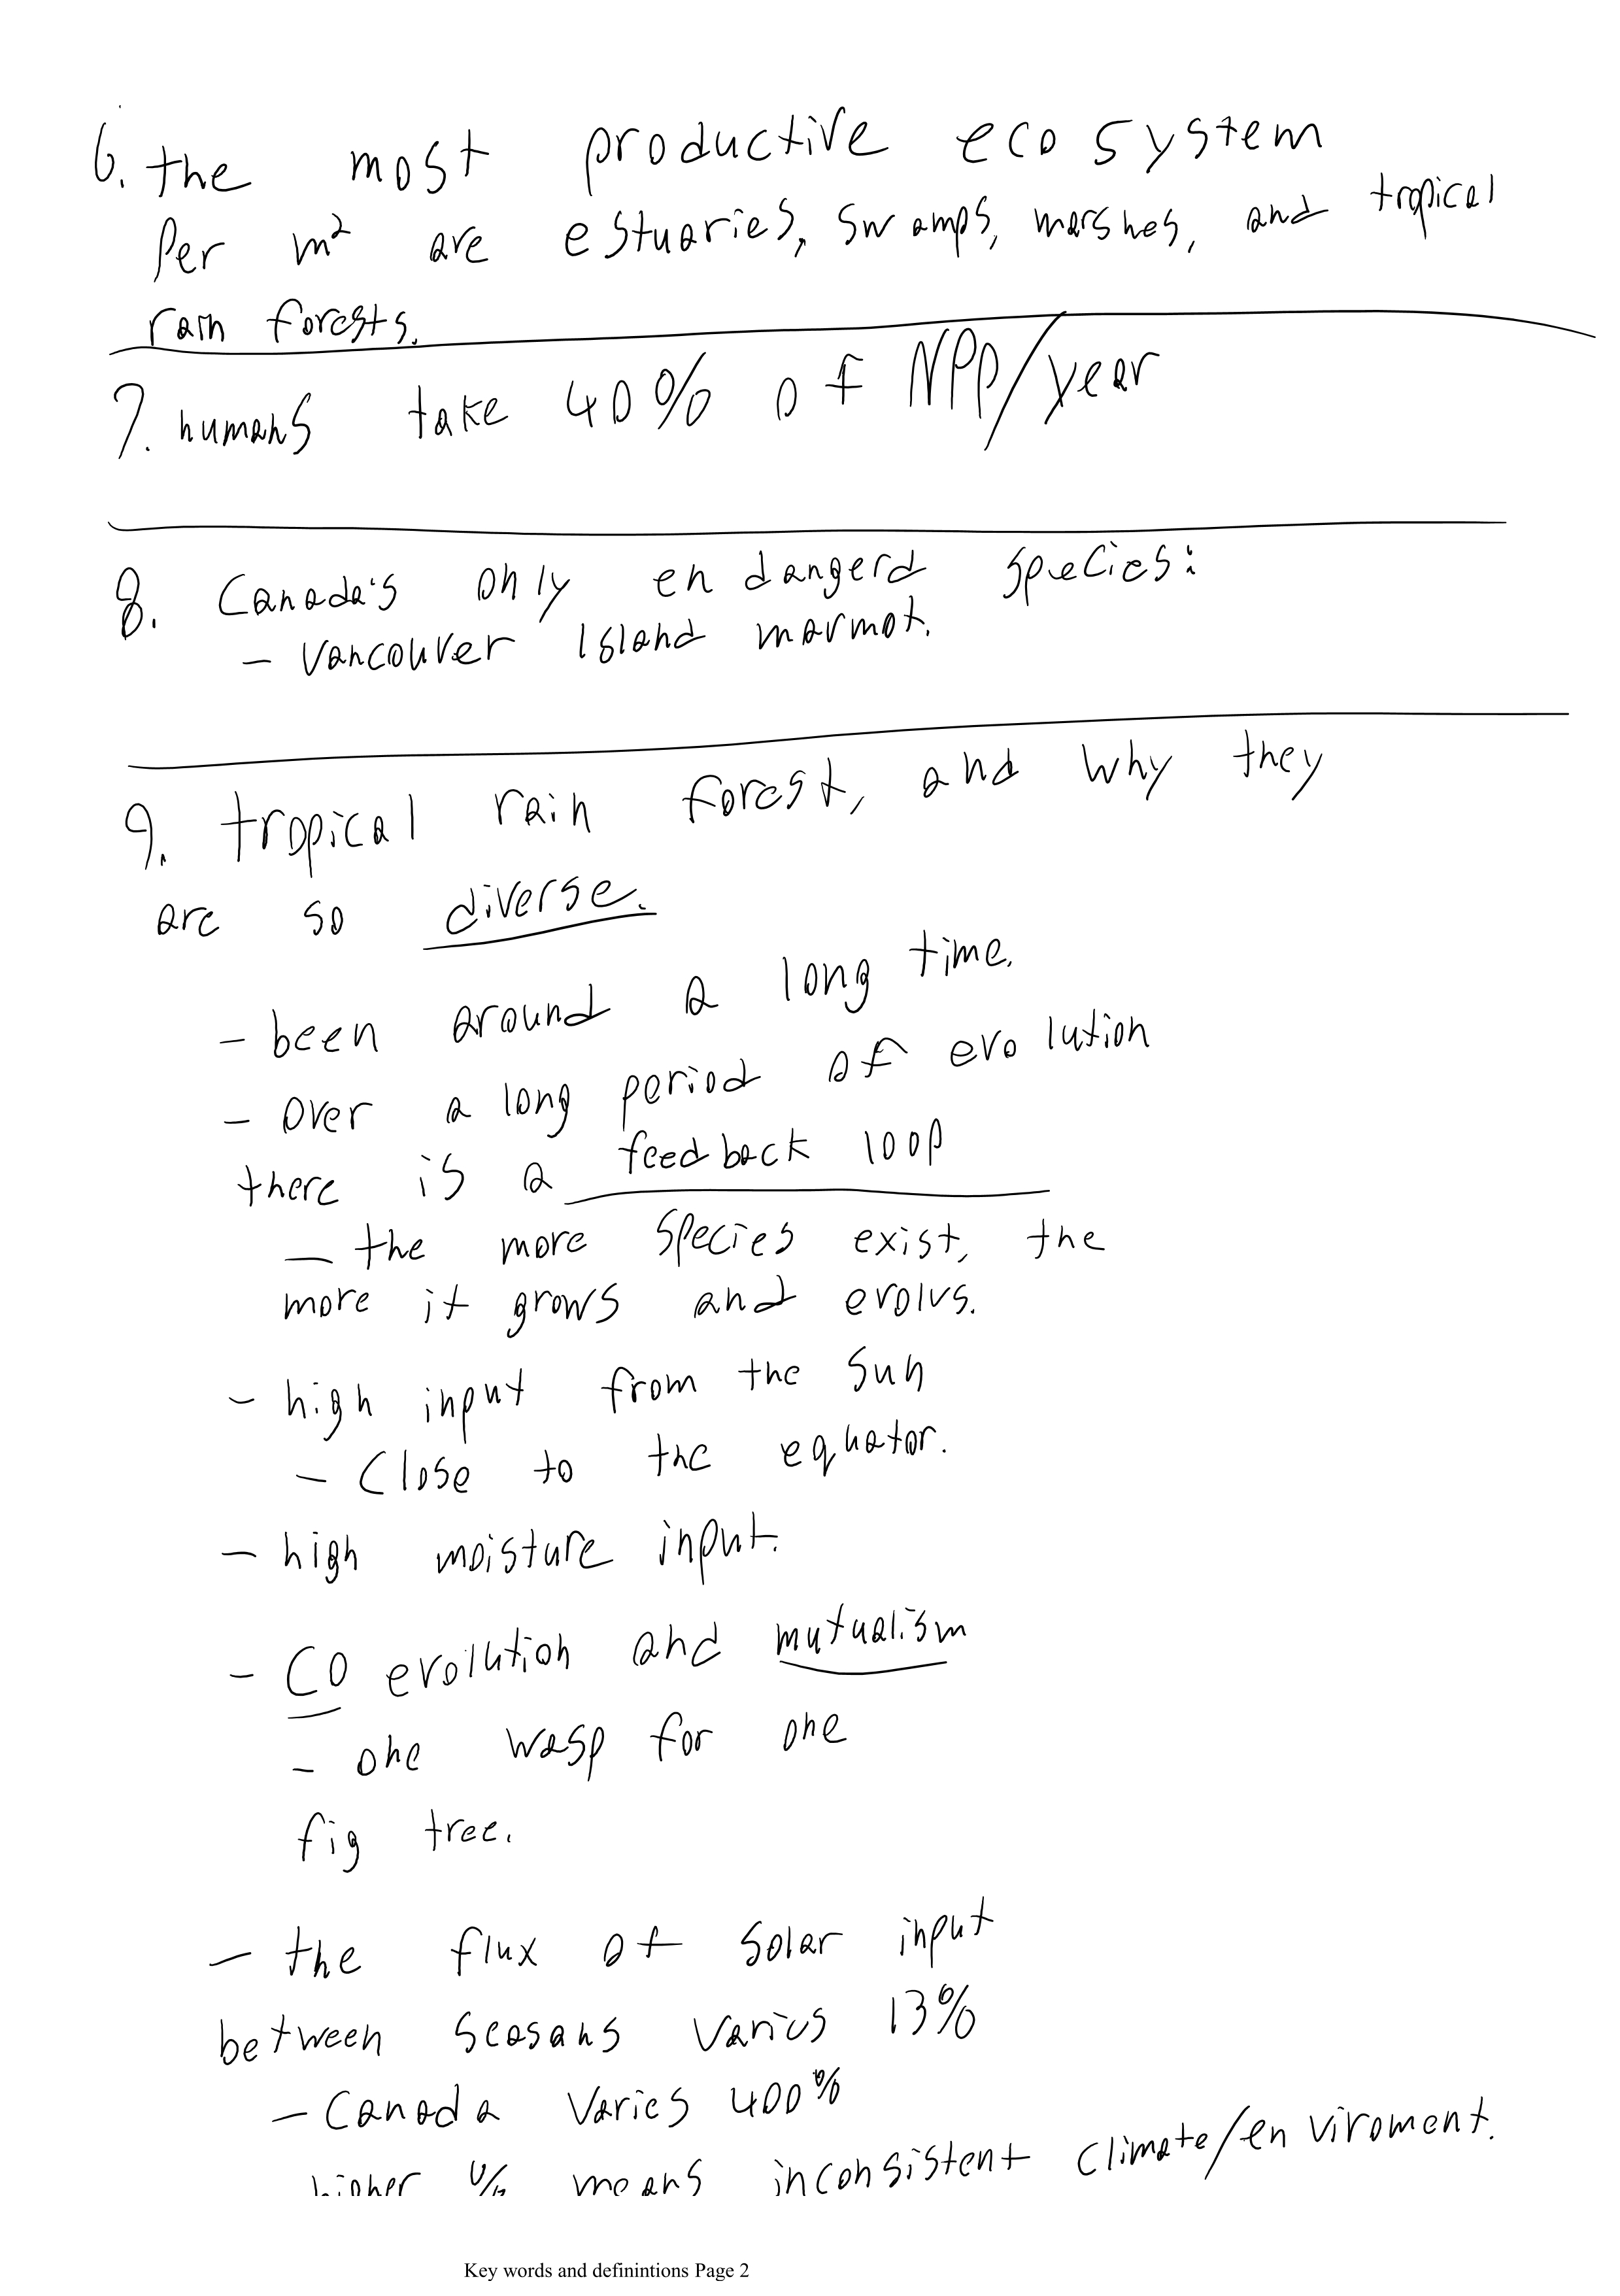 6. the most productive ecosystem
Per m² are estuaries, swamps, marshes, and tropical
rain forests.
7. humans take 40% of NPP/year
8. Canada's only endangerd species:
- Vancouver Island marmot.
9. tropical rain forest, and why they
are so diverse.
- been around a long time.
- Over a long period of evolution
there is a feedback loop
- the more species exist, the
more it grows and evolvs.
- high input from the sun
- Close to the equator.
- high moisture input.
- CO evolution and mutualism
- one wasp for one
fig tree.
- the flux of solar input
between seasons varius 13%
- Canada varies 400%
higher % means inconsistent climate/enviroment.
Key words and definintions Page 2